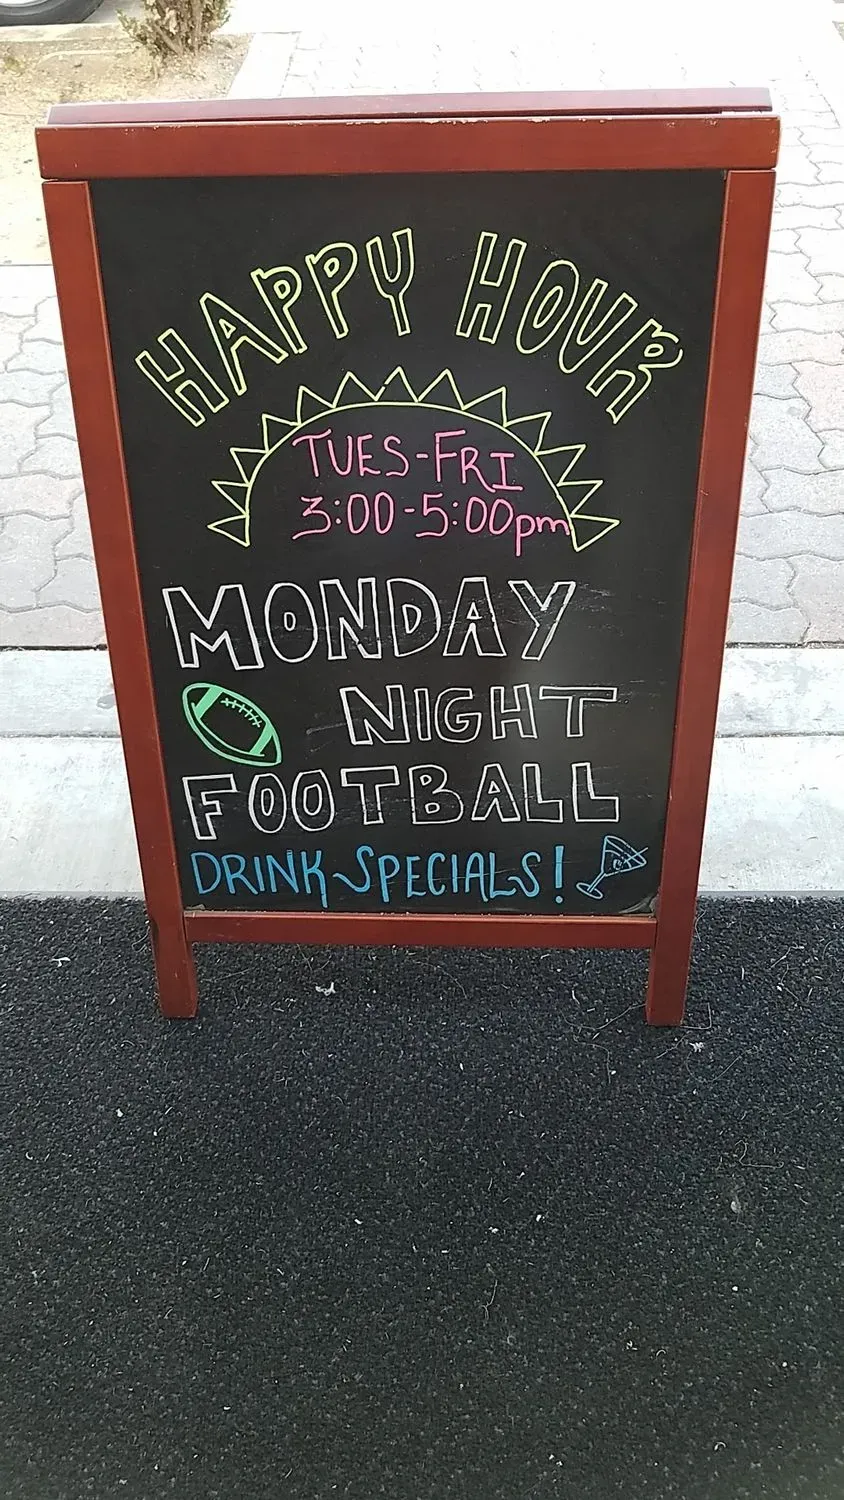 HAPPY HOUR
TUES-FRI
3:00-5:00pm
MONDAY
NIGHT
FOOTBALL
DRINK SPECIALS!